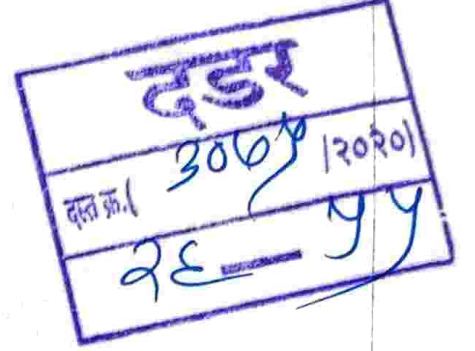 दडर
दस्त क्र.( ३०७५ /२०२०)
२६ — ५५